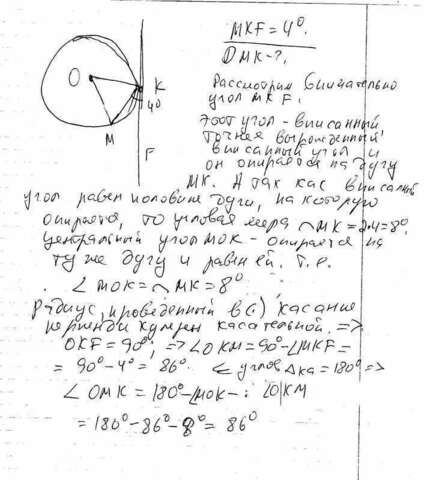 MKF = 4°.
OMK - ?.
O
K
40
M
F
Рассмотрим внимательно
угол MKF.
Этот угол - вписанный
точнее вырожденный
вписанный угол и
он опирается на дугу
MK. А так как вписанный
угол равен половине дуги, на которую
опирается, то угловая мера ◠MK = 2·4 = 8°.
Центральный угол MOK - опирается на
ту же дугу и равен ей. Т.е.
∠ MOK = ◠ MK = 8°
Радиус, проведенный в (·) касание
перпендикулярен касательной. =>
OKF = 90°, => ∠OKM = 90° - ∠MKF =
= 90° - 4° = 86°. ∠ углов Δка = 180° =>
∠ OMK = 180° - ∠MOK - ∠OKM
= 180° - 86° - 8° = 86°